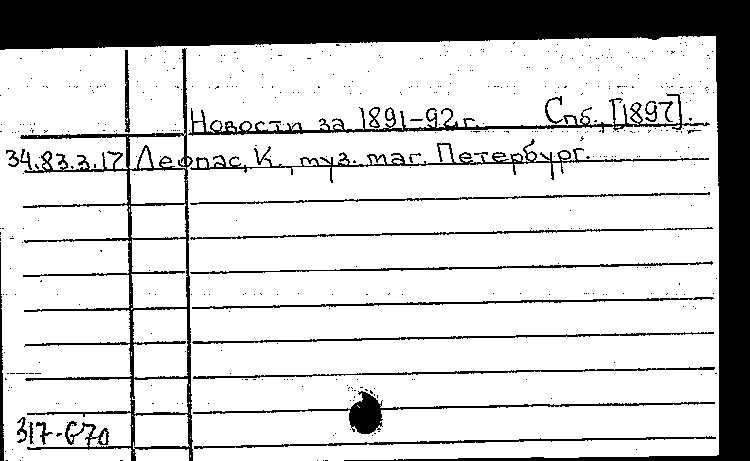 Новости за 1891-92 г. Спб., [1897].
34.83.3.17 Лефпас, К., муз. маг. Петербург.
317-670